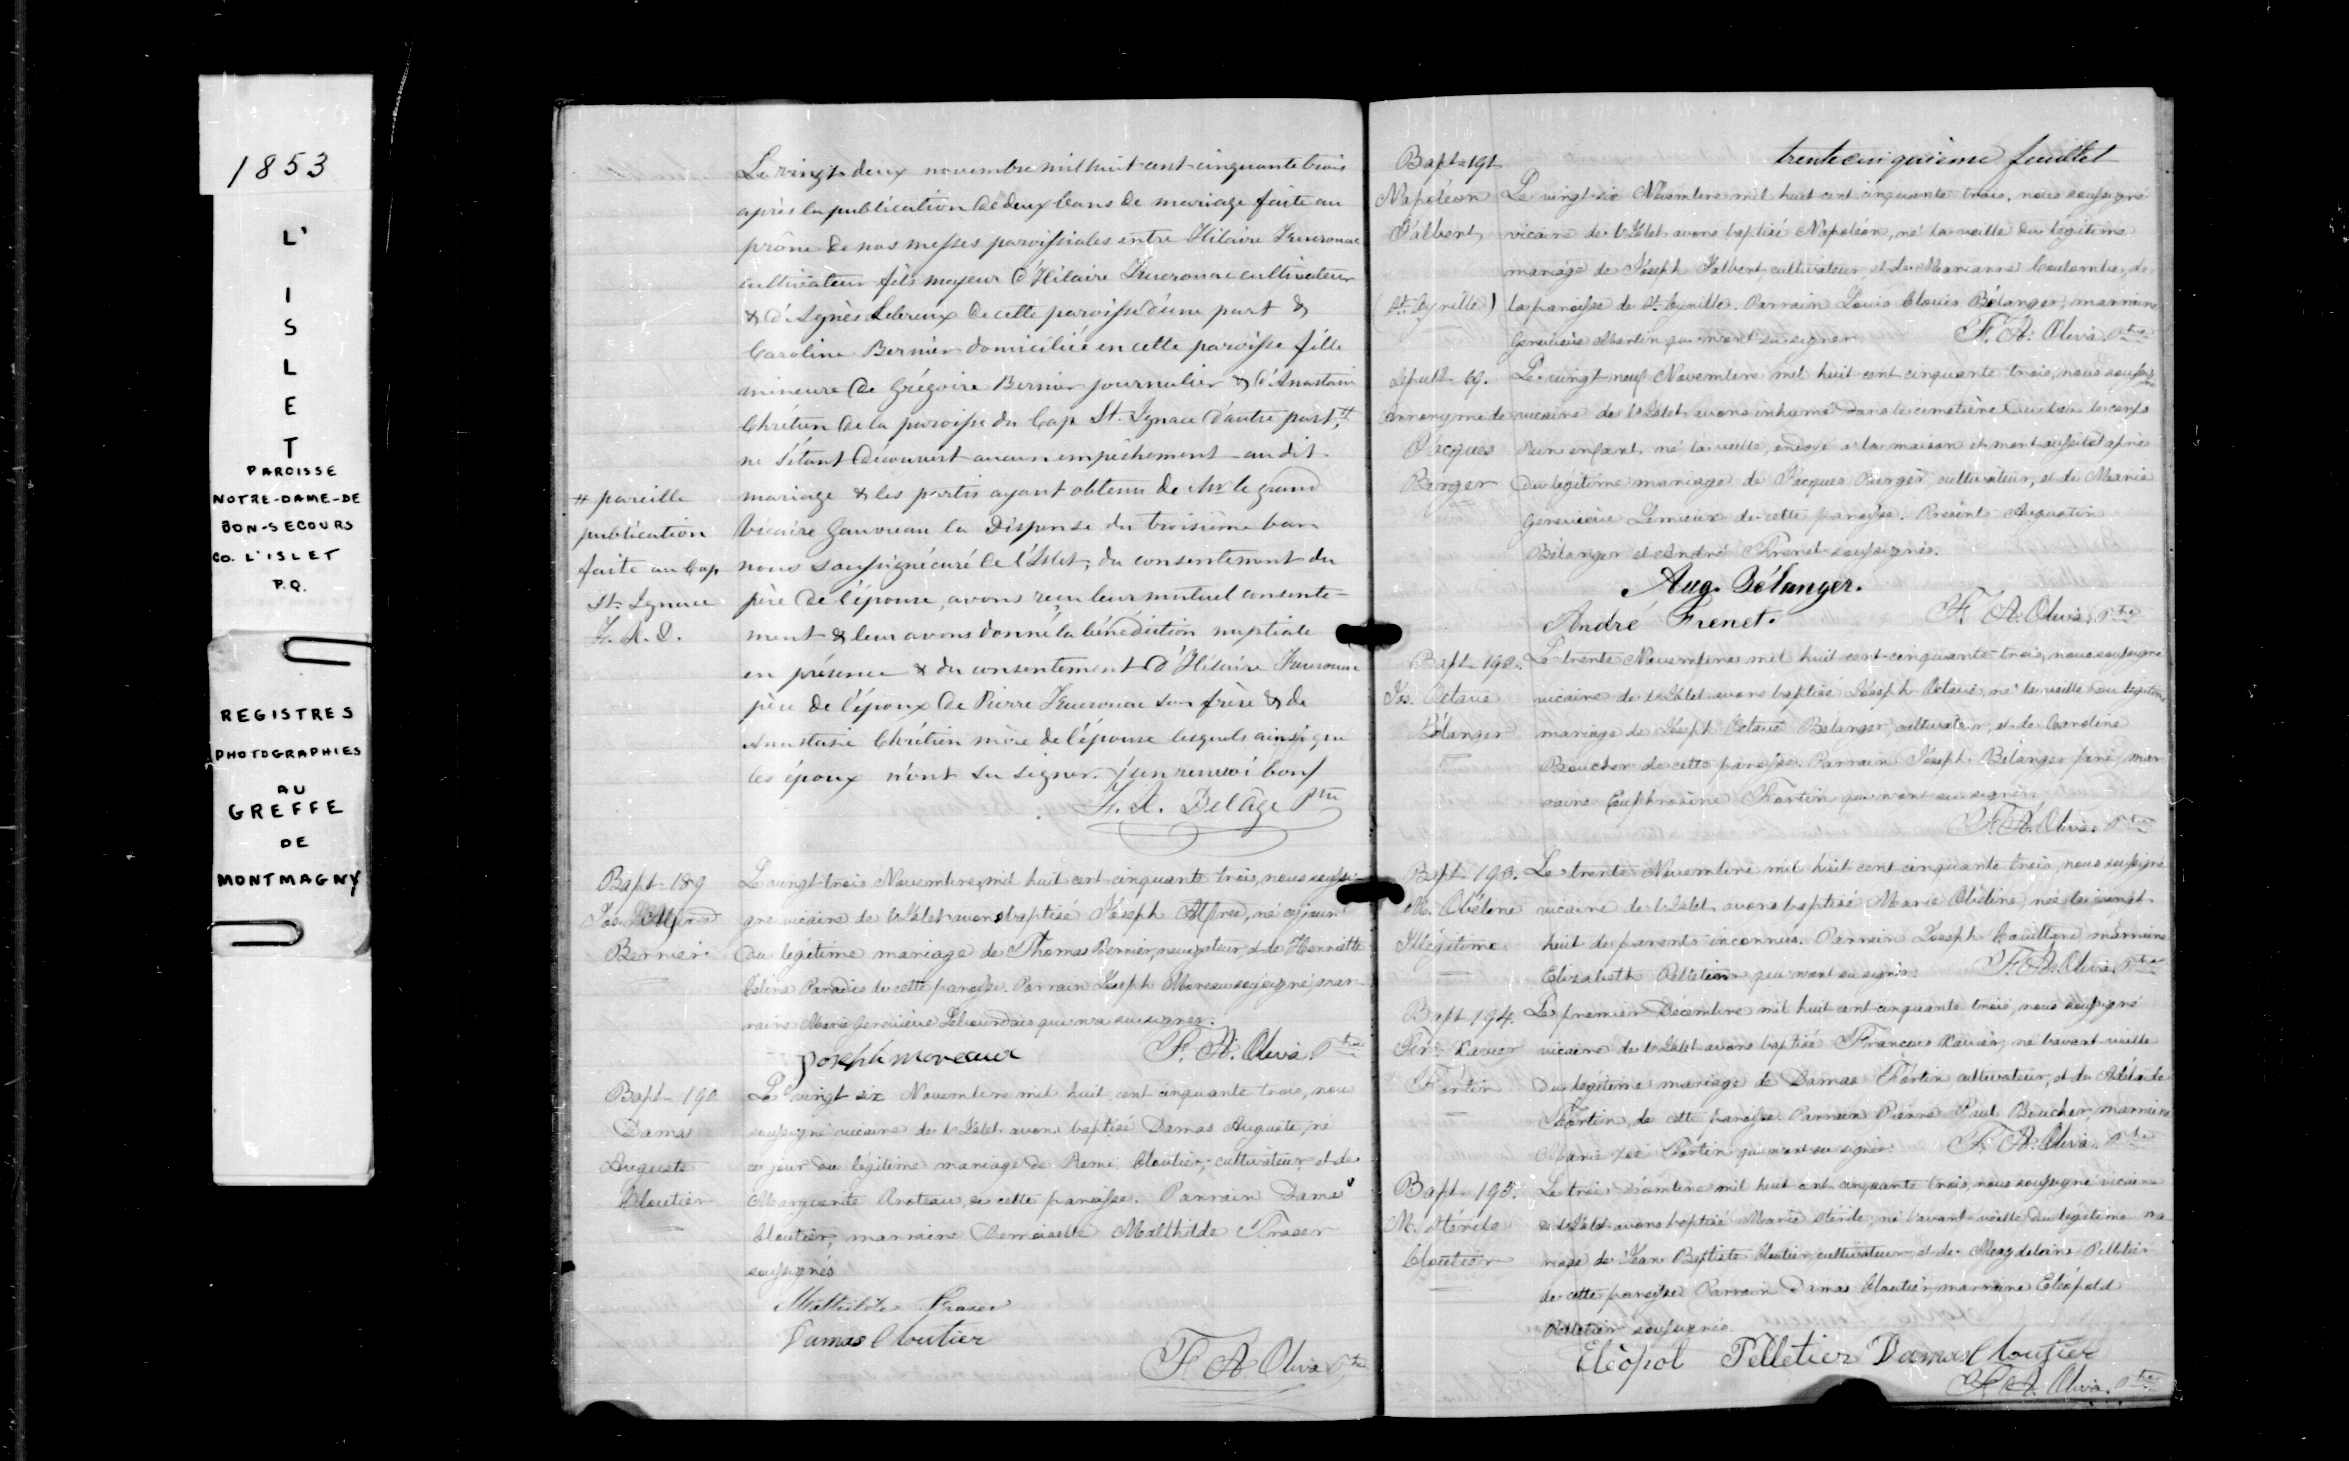 1853
L'
I
S
L
E
T
PAROISSE
NOTRE-DAME-DE
BON-SECOURS
CO. L'ISLET
P.Q.
REGISTRES
PHOTOGRAPHIES
AU
GREFFE
DE
MONTMAGNY
Le vingt deux novembre mil huit cent cinquante trois
après la publication de deux bans de mariage faite au
prône de nos messes paroissiales entre Hilaire
cultivateur fils majeur d'Hilaire cultivateur
& d'Agnès Lebreux de cette paroisse d'une part &
Caroline Bernier domiciliée en cette paroisse fille
mineure de Grégoire Bernier journalier & d'Anastasie
Chrétien de la paroisse du Cap St. Ignace d'autre part, #
ne s'étant découvert aucun empêchement au dit
# pareille
publication
faite au Cap
St. Ignace
mariage & les partis ayant obtenu de Mr le grand
Vicaire Gauvreau la dispense du troisième ban
nous soussigné curé de l'Islet, du consentement du
père de l'épouse, avons reçu leur mutuel consente-
ment & leur avons donné la bénédiction nuptiale
en présence & du consentement d'Hilaire
père de l'époux de Pierre son frère & de
Anastasie Chrétien mère de l'épouse lesquels ainsi que
les époux n'ont su signer. un renvoi bon
F. X. Delâge Ptre
Bapt 189
Jos. Alfred
Bernier
Le vingt trois Novembre mil huit cent cinquante trois, nous soussi-
gné vicaire de l'Islet avons baptisé Joseph Alfred, né ce jour
du légitime mariage de Thomas Bernier, navigateur, et de Henriette
Célina Paradis de cette paroisse. Parrain Joseph Moreau soussigné, mar-
raine Marie Geneviève Lebourdais qui n'a su signer.
Joseph Moreau F. A. Oliva Ptre
Bapt 190
Damas
Auguste
Cloutier
Le vingt six Novembre mil huit cent cinquante trois, nou
soussigné vicaire de l'Islet avons baptisé Damas Auguste, né
ce jour du légitime mariage de Remi Cloutier, cultivateur et de
Marguerite de cette paroisse. Parrain Damas
Cloutier, marraine Demoiselle Mathilde Fraser
soussignés
Mathilde Fraser
Damas Cloutier
F. A. Oliva Ptre
trente cinquième feuillet
Bapt 191
Napoléon
Talbert
(St. Cyrille)
Le vingt-six Novembre mil huit cent cinquante trois, nous soussigné
vicaire de l'Islet avons baptisé Napoléon, né la veille du légitime
mariage de Joseph Talbert, cultivateur, et de Marianne Coulombe, de
la paroisse de St. Cyrille. Parrain Louis Clovis Bélanger, marraine
Geneviève Martin qui n'ont su signer F. A. Oliva Ptre
Sépult 69.
Anonyme de
Jacques
Berger
Le vingt neuf Novembre mil huit cent cinquante trois, nous soussigné
vicaire de l'Islet avons inhumé dans le cimetière du lieu le corps
d'un enfant, né la veille, ondoyé à la maison et mort aussitôt après
du légitime mariage de Jacques Berger, cultivateur, et de Marie
Geneviève Lemieux de cette paroisse. Présent Augustin
Bélanger et André Frenet soussignés.
Aug. Bélanger.
André Frenet. F. A. Oliva, Ptre
Bapt 192.
Jos. Octave
Bélanger
Le trente Novembre mil huit cent cinquante trois, nous soussigné
vicaire de l'Islet avons baptisé Joseph Octave, né la veille du légitime
mariage de Joseph Octave Bélanger, cultivateur, et de Caroline
Boucher de cette paroisse. Parrain Joseph Bélanger père, mar
raine Euphrosine Fortin qui n'ont su signer
F. A. Oliva. Ptre
Bapt 193.
M. Obéline
Illégitime
Le trente Novembre mil huit cent cinquante trois, nous soussigné
vicaire de l'Islet avons baptisé Marie Obéline, née le vingt
huit de parents inconnus. Parrain Joseph marraine
Elizabeth Pelletier qui n'ont su signer. F. A. Oliva Ptre
Bapt 194.
Frs. Xavier
Fortin
Le premier Décembre mil huit cent cinquante trois, nous soussigné
vicaire de l'Islet avons baptisé François Xavier, né l'avant veille
du légitime mariage de Damas Fortin cultivateur, et de Adélaïde
Fortin, de cette paroisse. Parrain Pierre Paul Boucher, marraine
Marie Zoé Fortin qui n'ont su signer. F. A. Oliva. Ptre
Bapt 195.
Cloutier
Le trois Décembre mil huit cent cinquante trois, nous soussigné vicaire
de l'Islet avons baptisé Marie née l'avant veille du légitime ma
riage de Jean Baptiste Cloutier, cultivateur, et de Magdeleine Pelletier
de cette paroisse Parrain Damas Cloutier, marraine Eléopold
Pelletier soussignés.
Eléopol Pelletier Damas Cloutier
F. A. Oliva. Ptre